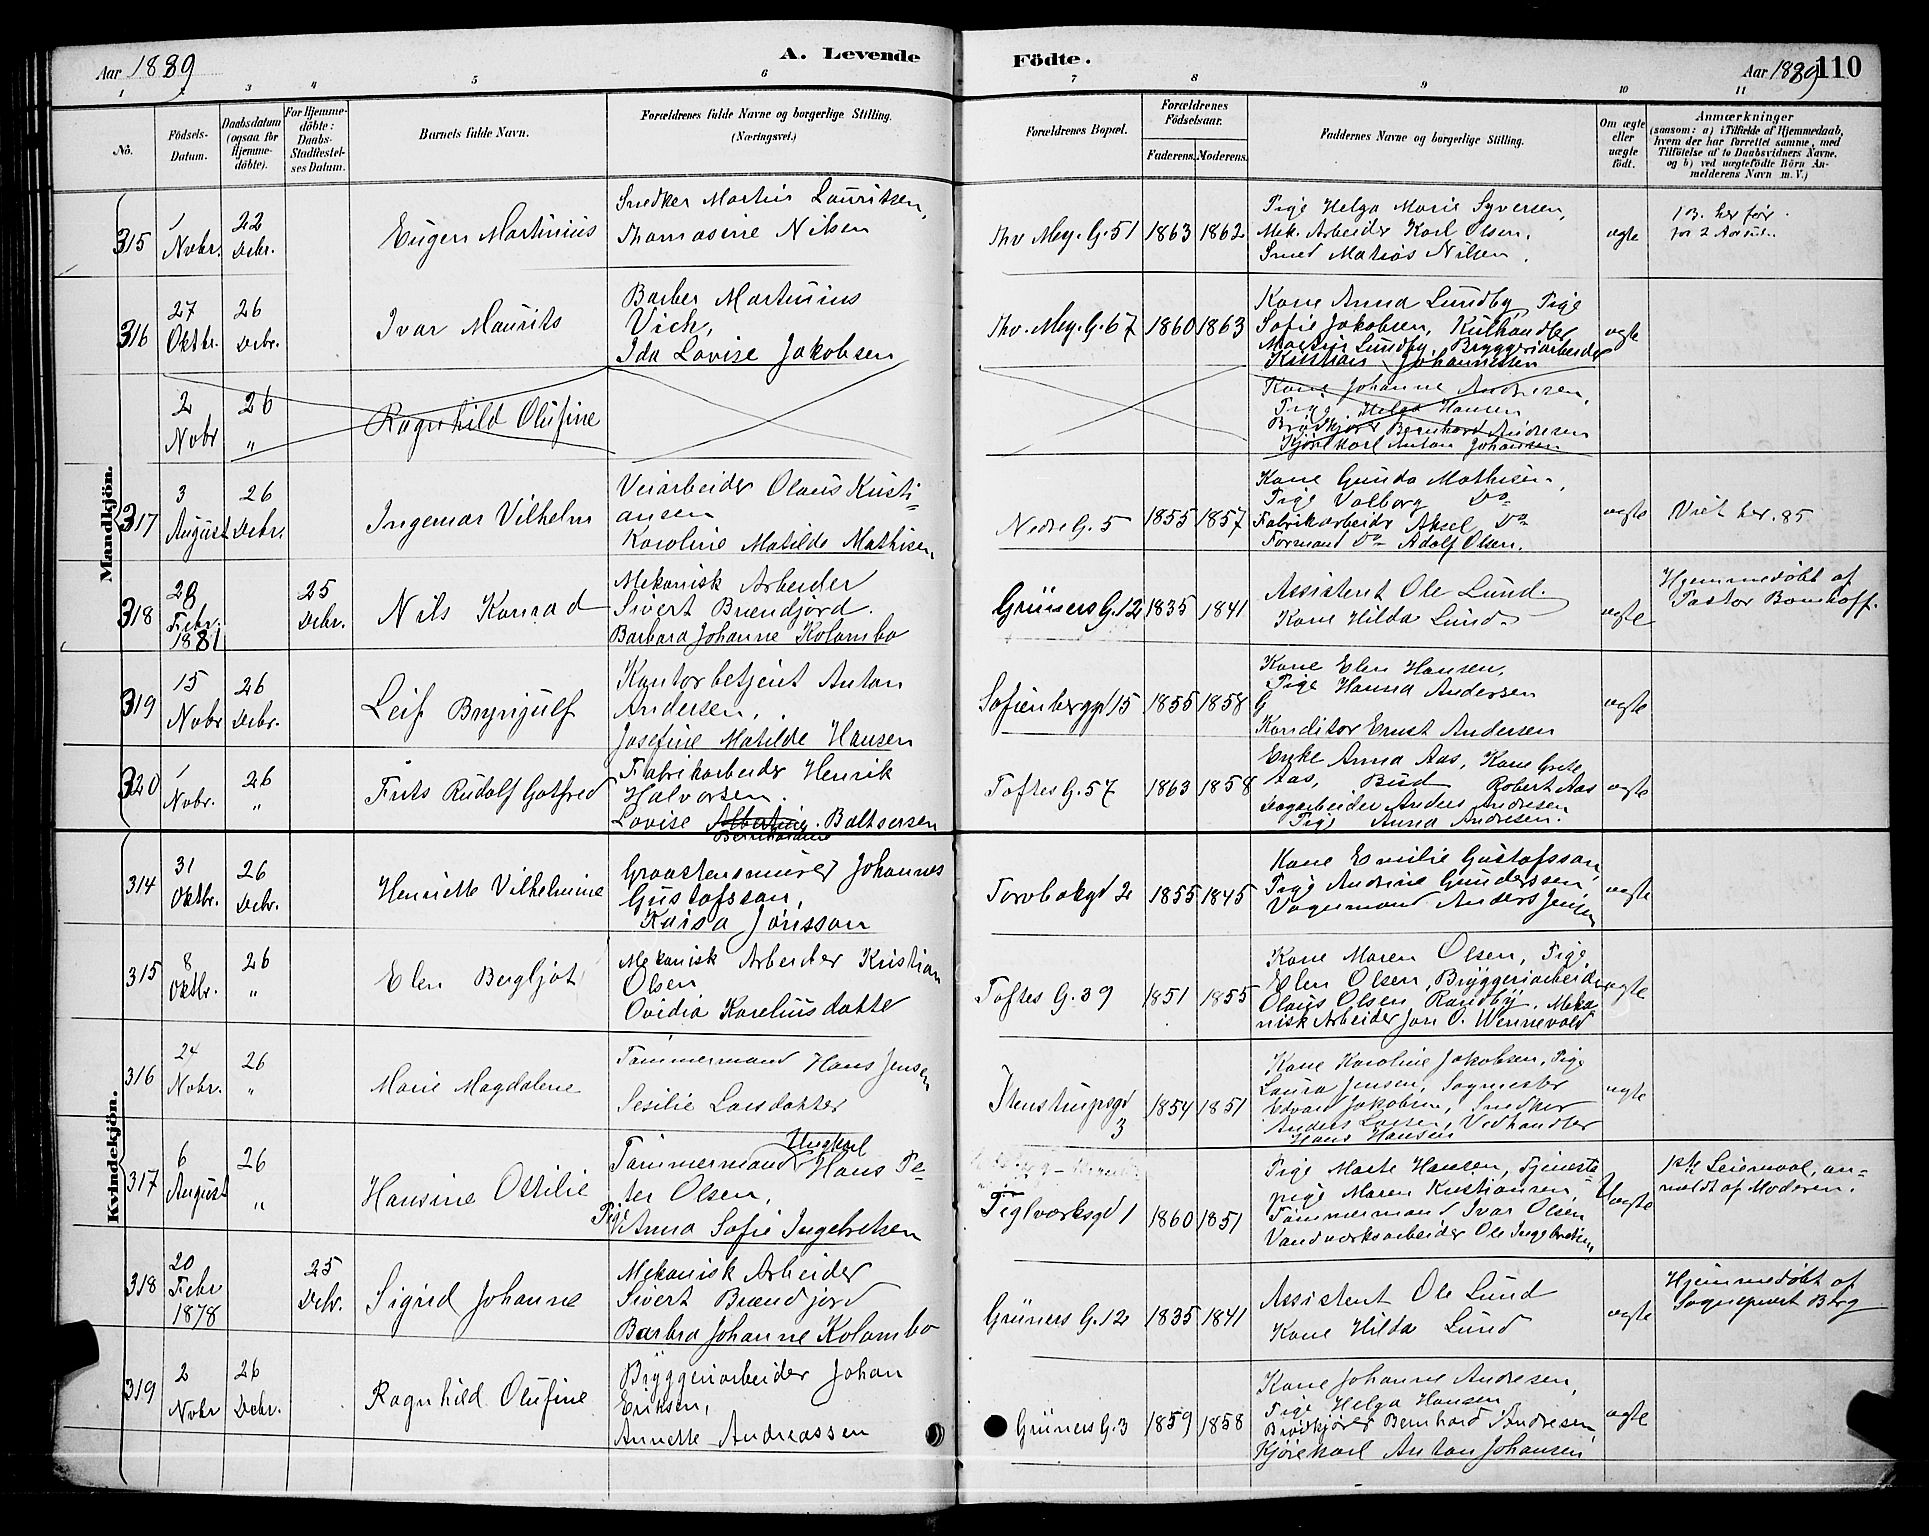 Aar 1889
A. Levende
Födte.
Aar 1889
110
1 2 3 4 5 6 7 8 9 10 11
No.
Födsels-Datum.
Daabsdatum (ogsaa for Hjemme-döbte).
For Hjemme-döbte: Daabs-Stadfæstel-ses Datum.
Barnets fulde Navn.
Forældrenes fulde Navne og borgerlige Stilling.
(Næringsvei.)
Forældrenes Bopæl.
Forældrenes Födselsaar.
Faderens. Moderens.
Faddernes Navne og borgerlige Stilling.
Om ægte eller uægte födt.
Anmærkninger
(saasom: a) i Tilfælde af Hjemmedaab,
hvem der har forrettet samme, med
Tilföielse af to Daabsvidners Navne,
og b) ved uægtefödte Börn An-
melderens Navn m. V.)
Mandkjön.
315
1 Novbr.
22 Debr.
Eugen Martinius
Snedker Martin Lauritsen,
Thomasine Nilsen
Thv. Mey. G. 51
1863 1862
Pige Helga Marie Syversen,
Mek. Arbeider Karl Olsen,
Smed Matias Nilsen.
ægte
316
27 Oktbr.
26 Debr.
Ivar Maurits
Barber Martinius
Vich,
Ida Lovise Jakobsen
Thv. Mey. G. 67
1860 1863
Kone Anna Lundby, Pige
Sofie Jakobsen, Kulhandler
Martin Lundby, Bryggeriarbeider
Kristian Johannesen
ægte
2 Nobr
26 "
Ragnhild Olufine
Kone Johanne Andresen,
Pige Helga Hansen
Brödkjörer Bernhard Andresen
Kjörekarl Anton Johansen
317
3 August
26 Debr.
Ingemar Vilhelm
Veiarbeider Olaus Kristi-
ansen
Karoline Matilde Mathisen
Nedre G. 5
1855 1857
Kone Gunda Mathisen,
Pige Valborg Do
Fabrikarbeider Aksel Do
Formand Do Adolf Olsen.
ægte
Viet her. 85
318
28 Febr. 1881
25 Debr.
Nils Konrad
Mekanisk Arbeider
Sivert Brændjord.
Barbara Johanne Kolombo
Grüners G. 12
1835 1841
Assistent Ole Lund.
Kone Hilda Lund
ægte
Hjemmedöbt af
Pastor Bomhoff.
319
15 Novbr
26 Debr.
Leif Brynjulf
Kontorbetjent Anton
Andersen,
Josefine Matilde Hansen
Sofienberggd 15
1855 1858
Kone Elen Hansen,
Pige Hanna Andersen
G
Konditor Ernst Andersen
ægte
320
1 Novbr.
26 "
Frits Rudolf Gotfred
Fabrikarbeider Henrik
Halvorsen.
Lovise Albertine Baltsersen
Bernhardine
Toftes G. 57
1863 1858
Enke Anna Aas, Kone Grete
Aas, Bud Robert Aas
Sagarbeider Anders Andresen
Pige Anna Andresen.
ægte
Kvindekjön.
314
31 Oktbr.
26 Debr.
Henriette Vilhelmine
Graastensmurer Johannes
Gustafsson,
Kaisa Jonsson
Torvbakgd 2
1855 1845
Kone Emilie Gustafsson,
Pige Andrine Gundersen,
Vognmand Anders Jensen
ægte
315
8 Oktbr.
26 "
Elen Bergljot
Mekanisk Arbeider Kristian
Olsen
Ovidia Korneliusdatter
Toftes G. 39
1851 1855
Kone Maren Olsen, Pige
Elen Olsen, Bryggeriarbeider
Olaus Olsen Randby, Meka-
nisk Arbeider Jon O. Wennevold
ægte
316
24 Nobr.
26 "
Marie Magdalene
Tömmermand Hans Jensen
Sesilie Larsdatter
Stenstrupsgd 3
1854 1851
Kone Karoline Jakobsen, Pige
Laura Jensen, Sagmester
Edvard Jakobsen, Snedker
Anders Larsen, Vedhandler
Hans Hansen
ægte
317
6 August
26 "
Hansine Ottilie
Ungkarl
Tömmermand Hans Pe-
ter Olsen,
Pige Anna Sofie Ingebretsen
Teglværksgd 1
1860 1851
Pige Marte Hansen, Tjeneste-
pige Maren Kristiansen,
Tömmermand Ivar Olsen
Vandværksarbeider Ole Ingebretsen
Uægte
1ste Leiermaal, an-
meldt af Moderen.
318
20 Febr 1878
25 Debr.
Sigrid Johanne
Mekanisk Arbeider
Sivert Brændjord
Barbra Johanne Kolombo
Grüners G. 12
1835 1841
Assistent Ole Lund
Kone Hilda Lund
ægte
Hjemmedöbt af
Sogneprest Berg
319
2 Novbr
26 Debr.
Ragnhild Olufine
Bryggeriarbeider Johan
Eriksen,
Annette Andreassen
Grüners G. 3
1859 1858
Kone Johanne Andresen,
Pige Helga Hansen
Brödkjörer Bernhard Andresen,
Kjörekarl Anton Johansen
ægte